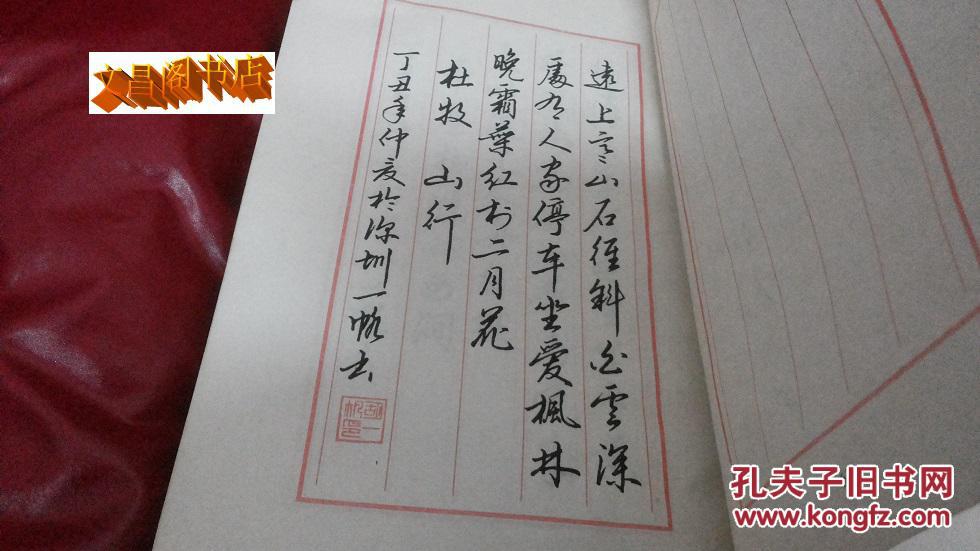 文昌阁书店
遠上寒山石徑斜白雲深
處有人家停车坐爱楓林
晚霜葉红於二月花
杜牧 山行
丁丑年仲夏於深圳一帆书
孔夫子旧书网
www.kongfz.com